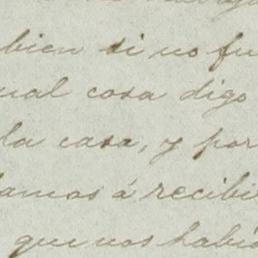 bien si no fu
ual cosa digo
la casa, y por
amos á recibi
que nos habí